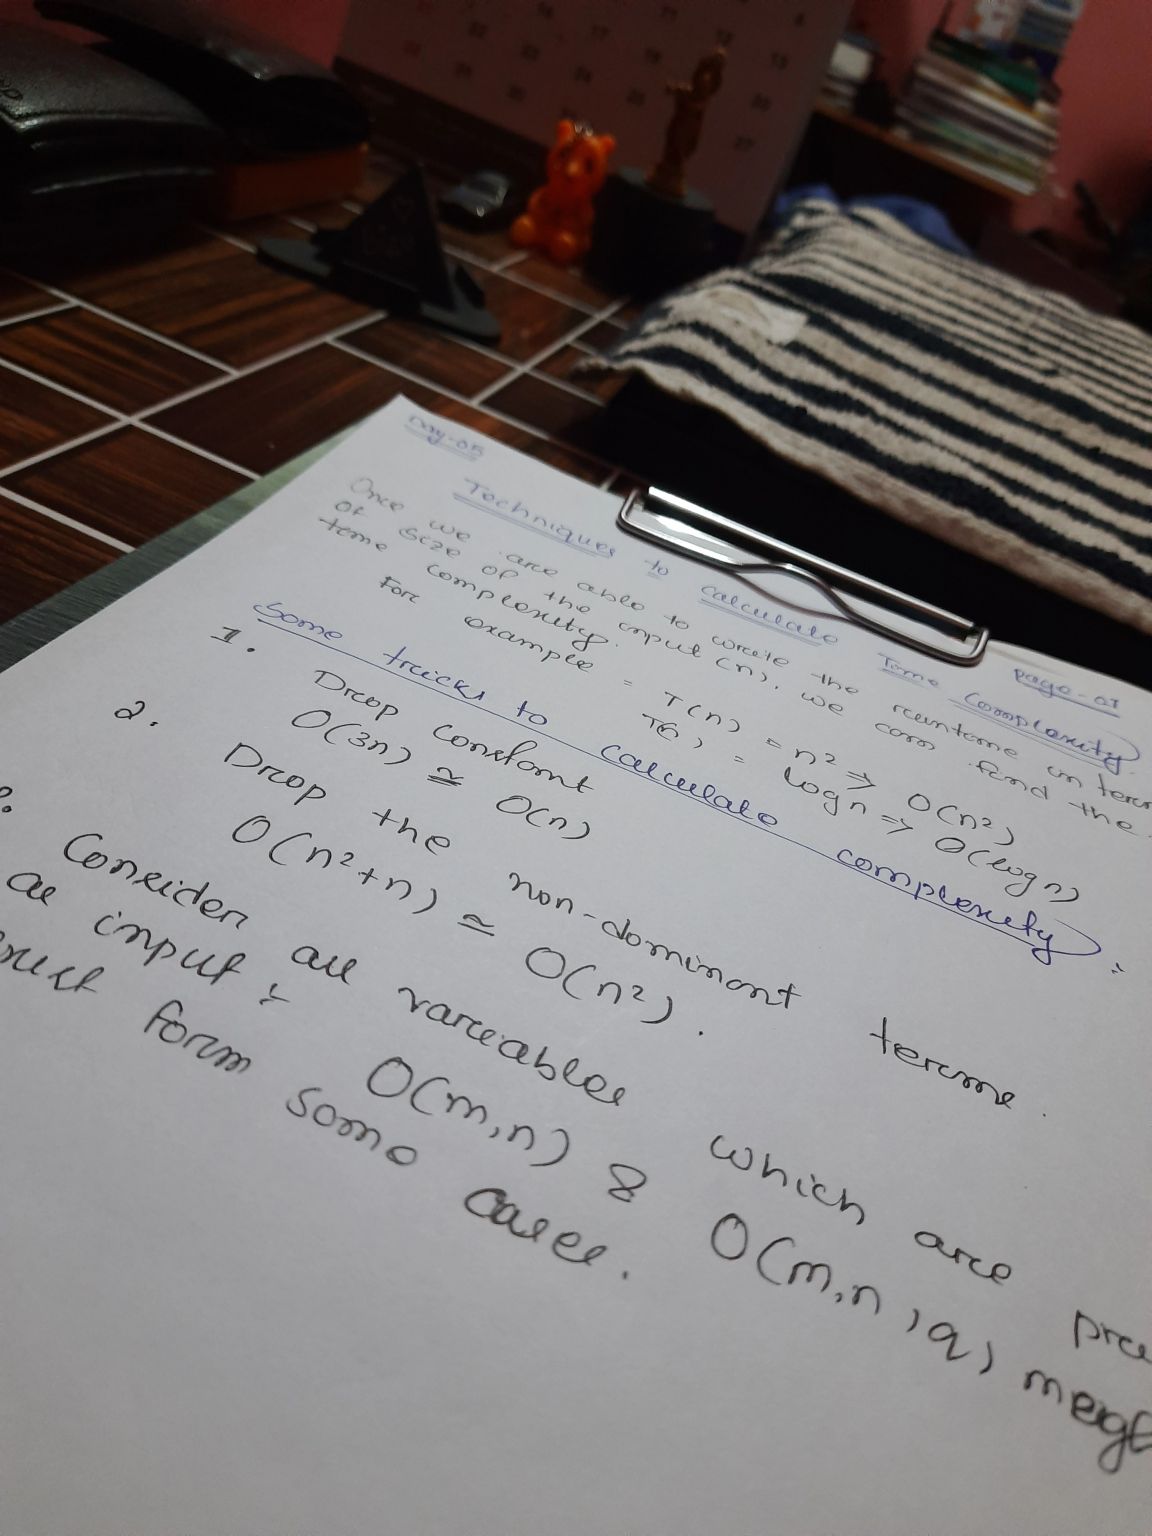 Day-05
Page-01
Techniques to calculate Time Complexity.
Once we are able to write the runtime in term
of size of the input (n), we can find the
time complexity.
For example = T(n) = n² => O(n²)
= log n => O(log n)
Some tricks to calculate complexity:
1. Drop constant
O(3n) ≃ O(n)
2. Drop the non-dominant terms.
O(n²+n) ≃ O(n²).
Consider all variables which are pre
as input :- O(m,n) & O(m,n,q) migh
form some cases.